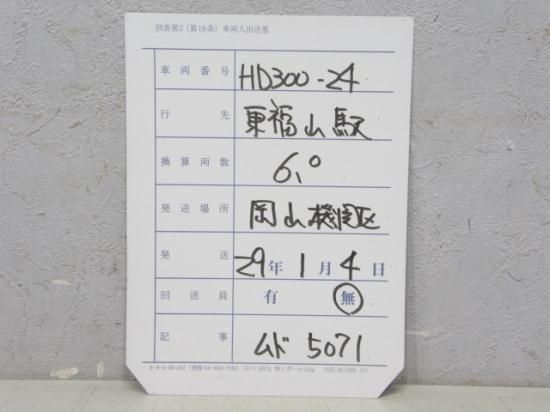 別表第2(第19条)車両入出送票
車両番号 HD300-24
行先 東福山駅
換算両数 6.0
発送場所 岡山機関区
発送 29年1月4日
回送員 有 無
記事 ムド 5071